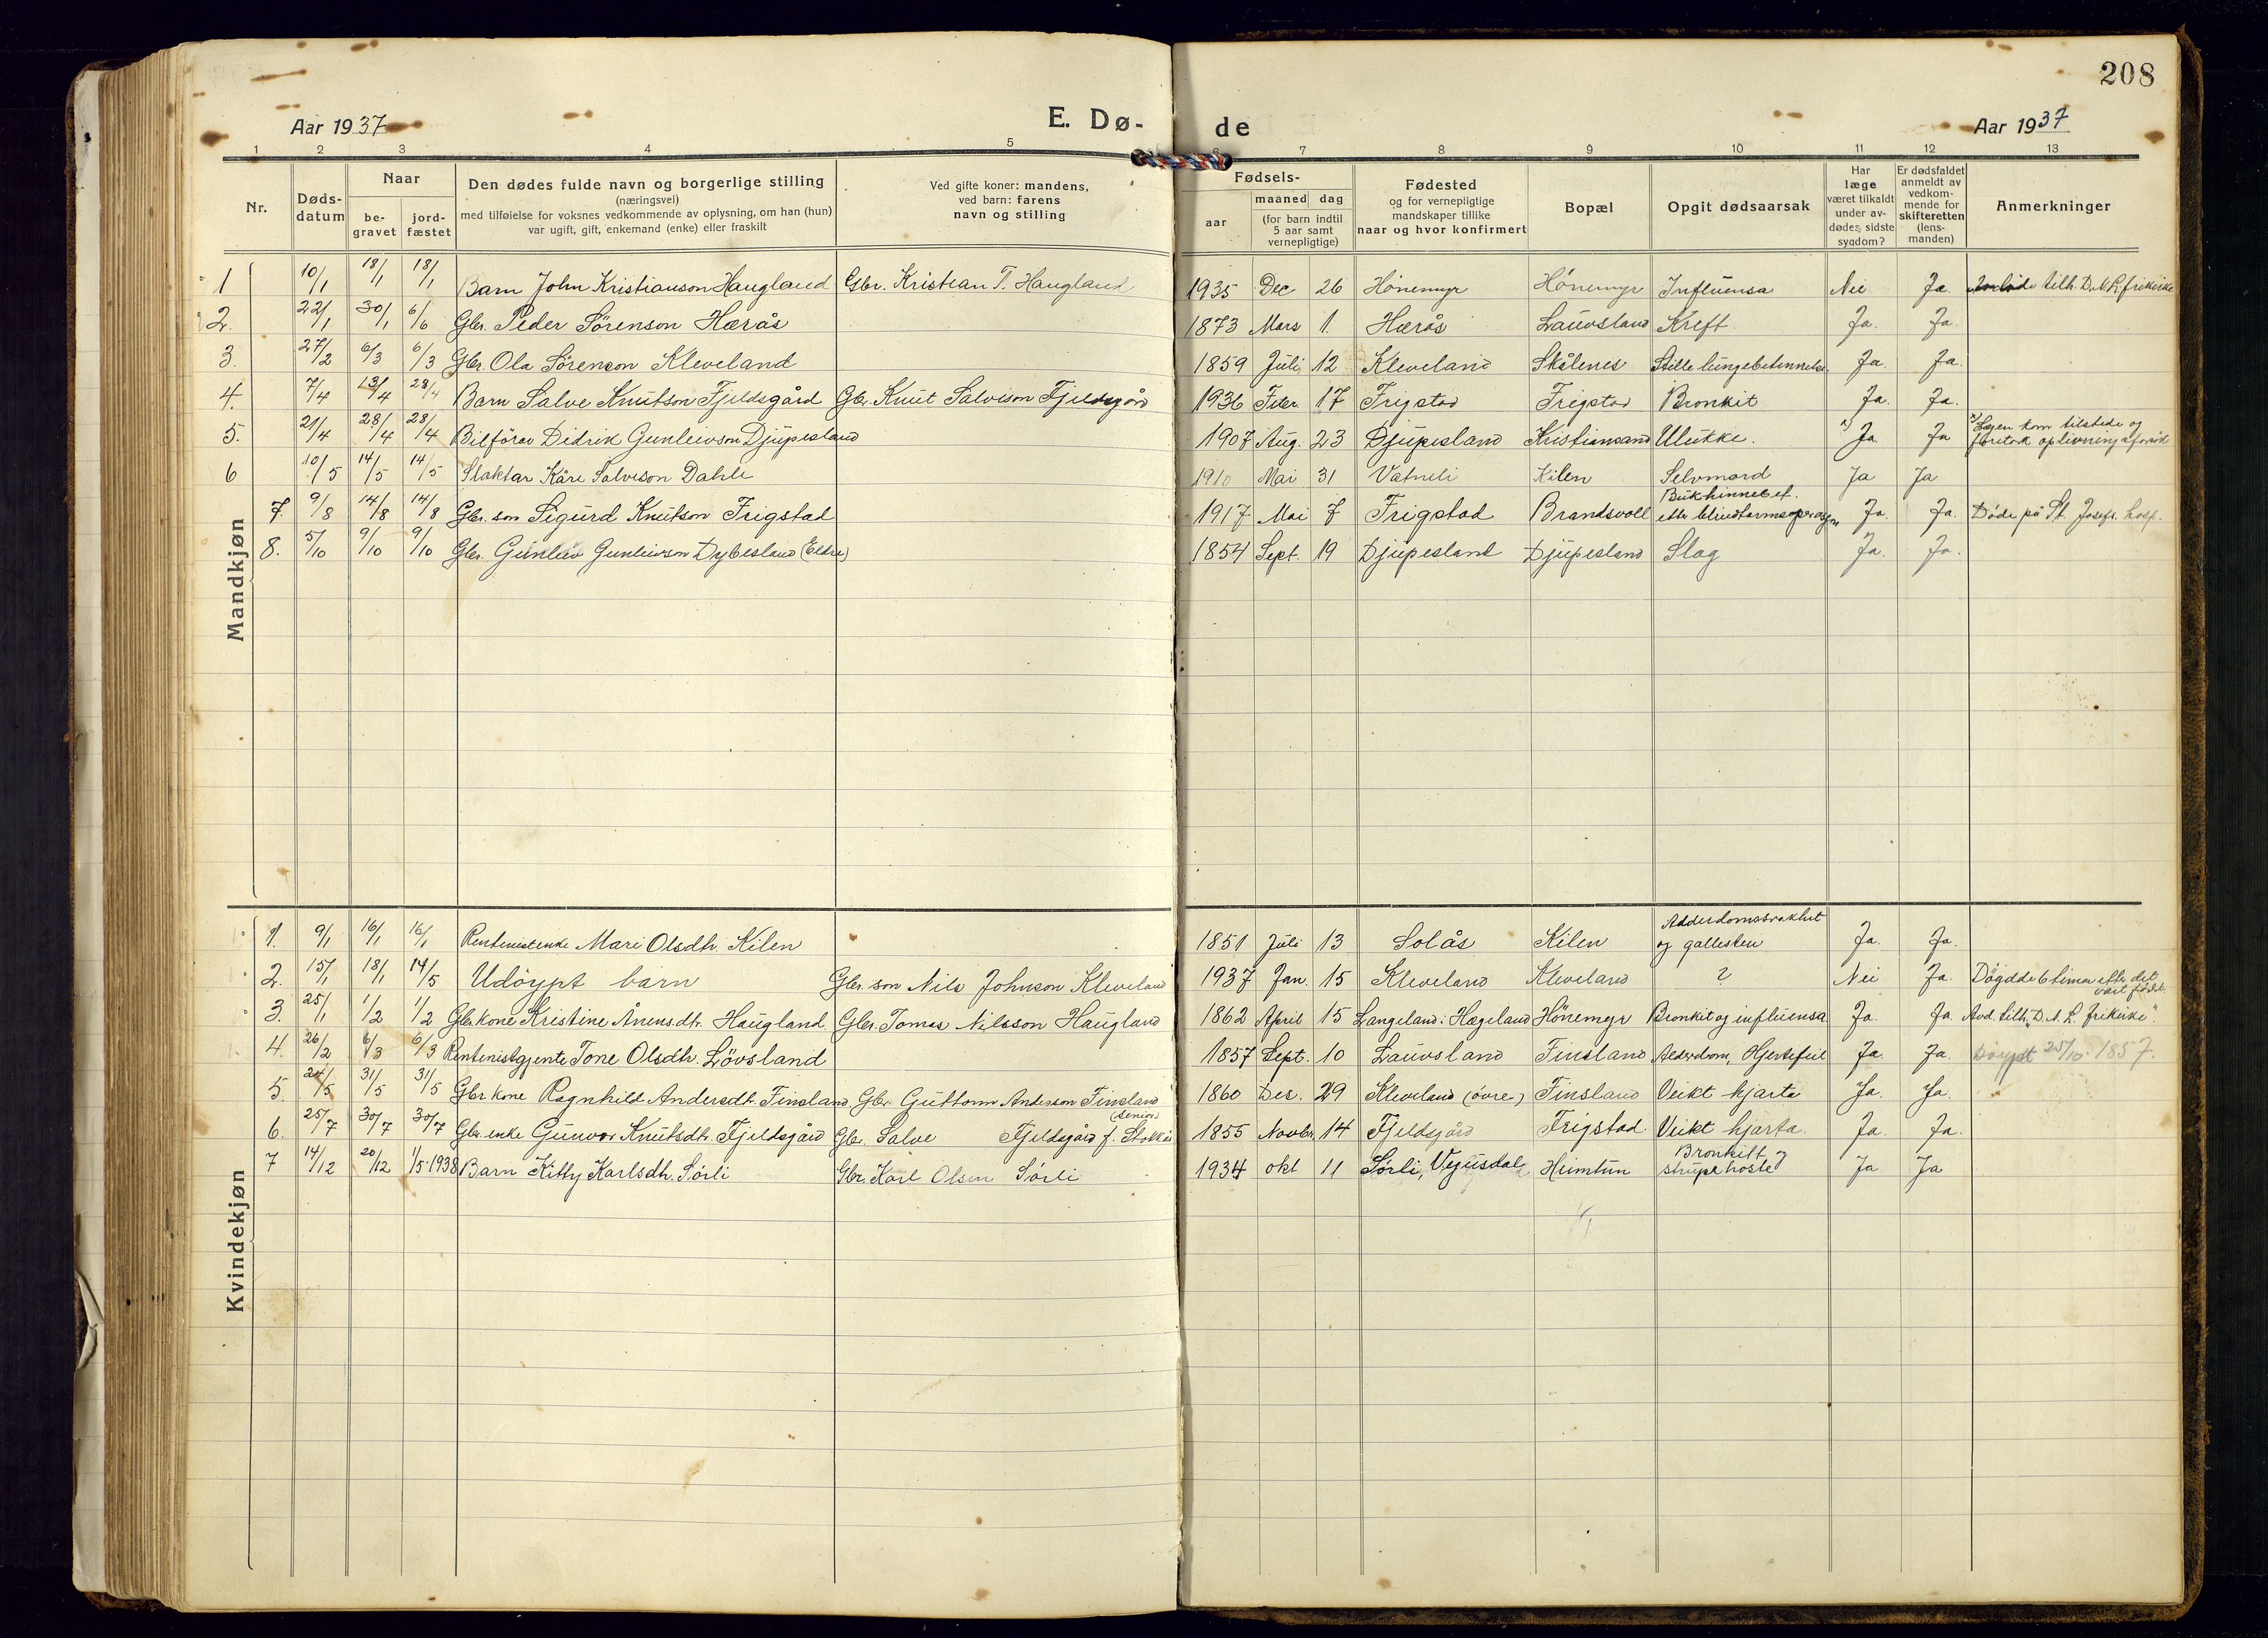 208
Aar 1937 E. Dø- de Aar 1937
1 2 3 4 5 6 7 8 9 10 11 12 13
Nr.
Døds-datum
Naar
be-gravet
jord-fæstet
Den dødes fulde navn og borgerlige stilling
(næringsvei)
med tilføielse for voksnes vedkommende av oplysning, om han (hun)
var ugift, gift, enkemand (enke) eller fraskilt
Ved gifte koner: mandens,
ved barn: farens
navn og stilling
Fødsels-
aar
maaned dag
(for barn indtil
5 aar samt
vernepligtige)
Fødested
og for vernepligtige
mandskaper tillike
naar og hvor konfirmert
Bopæl
Opgit dødsaarsak
Har
læge
været tilkaldt
under av-
dødes sidste
sygdom?
Er dødsfaldet
anmeldt av
vedkom-
mende for
skifteretten
(lens-
manden)
Anmerkninger
Mandkjøn
1 10/1 18/1 18/1 Barn John Kristianson Haugland Gbr. Kristian T. Haugland 1935 Dec 26 Hönemyr Hönemyr Influensa Nei Ja. tilh. D. N. L. frikirke
2. 22/1 30/1 6/6 Gbr. Peder Sörenson Hærås 1873 Mars 1. Hærås Lauvsland Kreft. Ja. Ja.
3. 27/2 6/3 6/3 Gbr. Ola Sörenson Kleveland 1859 Juli 12 Kleveland Skålenes Stille lungebetennelse. Ja. Ja.
4. 7/4 13/4 28/4 Barn Salve Knutson Fjeldsgård Gbr. Knut Salveson Fjeldsgård 1936 Febr. 17 Frigstad Frigstad Bronkit Ja. Ja.
5. 21/4 28/4 28/4 Bilförar Didrik Gunleivson Djupesland 1907 Aug. 23 Djupesland Kristiansand Ulukke. x) Ja Ja x) Lægen kom tilstede og
foretok oplivningsforsök
6 10/5 14/5 14/5 Slaktar Kåre Salveson Dahle 1910 Mai 31 Vatneli Kilen Selvmord Ja Ja
7. 9/8 14/8 14/8 Gbr. son Sigurd Knutson Frigstad 1917 Mai 7 Frigstad Brandsvoll Bukhinnebet.
efter blindtarmsoperasjon Ja. Ja. Döde på St. Josefs hosp.
8. 5/10 9/10 9/10 Gbr. Gunleiv Gunleivson Dybesland (Eldre) 1854 Sept. 19 Djupesland Djupesland Slag Ja. Ja.
Kvindekjøn
1. 9/1 16/1 16/1 Rentenistenke Mari Olsdtr. Kilen 1851 Juli 13 Solås Kilen Adderdomssvakhet
og gallesten Ja. Ja.
2. 15/1 18/1 14/5 Udöypt barn Gbr. son Nils Johnson Kleveland 1937 Jan. 15 Kleveland Kleveland ? Nei Ja. Dögdde 6 timar efter det
vart födt.
3. 25/1 1/2 1/2 Gbr. kone Kristine Ånensdtr. Haugland. Gbr. Tomas Nilsson Haugland 1862 April 15 Langeland i Hægeland Hönemyr Bronkit og influensa Ja. Ja Avd. tilh. "D. N. L. frikirke".
4. 26/2 6/3 6/3 Rentenistgjente Tone Olsdtr. Lövsland 1857 Sept. 10 Lauvsland Finsland Alderdom, Hjertefeil Ja. Ja. Döypt 25/10. 1857.
5. 24/5 31/5 31/5 Gbr kone Ragnhild Andersdtr. Finsland Gbr. Guttorm Andersson Finsland
(senior) 1860 Des. 29 Kleveland (övre) Finsland Veikt hjarta Ja. Ja.
6. 25/7 30/7 30/7 Gbr. enke Gunvor Knutsdtr. Fjeldsgård Gbr. Salve Fjeldsgård f. Stokkås 1855 Novbr. 14 Fjeldsgård Frigstad. Veikt hjarta. Ja. Ja.
7 14/12 20/12 1/5-1938 Barn Kitty Karlsdtr. Sörli Gbr. Karl Olsen Sörli 1934 okt 11 Sörli, Vegusdal Heimtun Bronkitt og
strupehoste Ja Ja